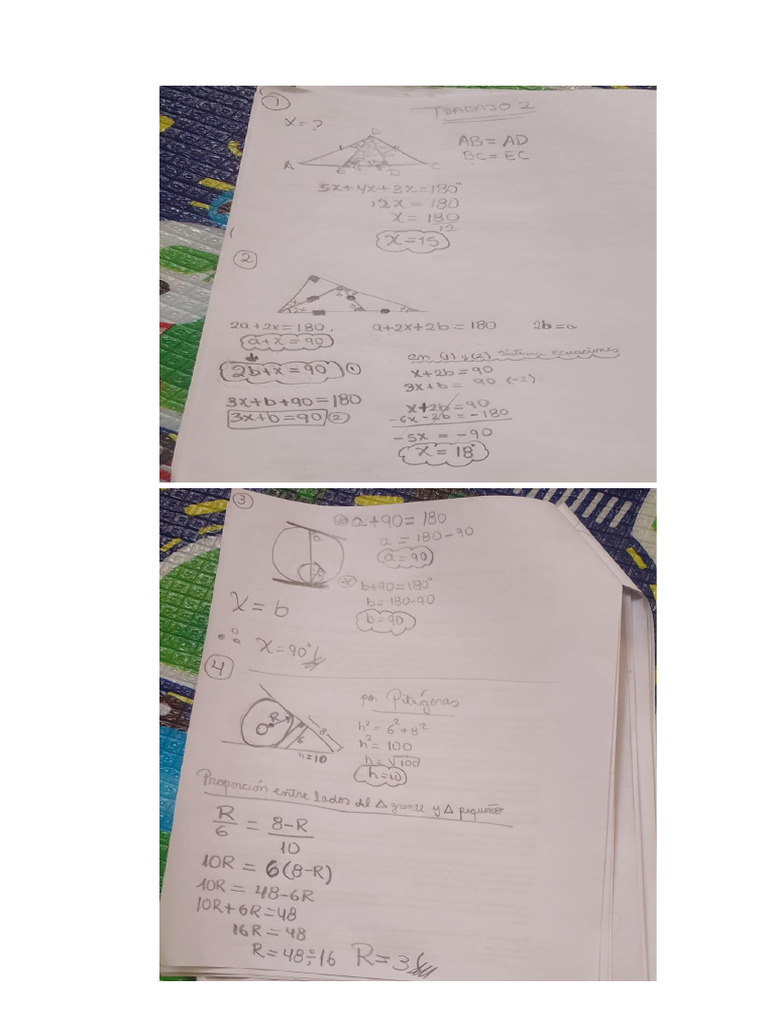 ①
TRABAJO 2
X = ?
AB = AD
BC = EC
A
C
5x+4x+3x=180°
12x = 180
x = 180
12
x=15
②
2a+2x=180
a+2x+2b=180
a+x=90
2b+x=90 ①
em (1) y (2) Sistema Ecuaciones
x+2b=90
3x+b = 90 (-2)
3x+b+90=180
3x+b=90 ②
x+2b=90
-6x-2b=-180
-5x = -90
x = 18°
③
a+90=180
a = 180-90
a=90
b+90=180°
b=180-90
b=90
X = b
∴ X=90°
④
R
O
8
6
h=10
por Pitágoras
h²=6²+8²
h²=100
h=√100
h=10
Proporción entre lados del △ grande y △ pequeño
R = 8-R
6 10
10R = 6(8-R)
10R = 48-6R
10R+6R=48
16R=48
R=48÷16 R=3